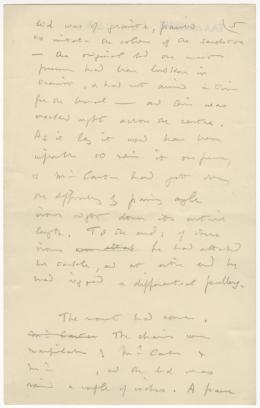 5
lid was of granite, painted
to imitate the colour of the sandstone
— the original lid one must
presume had been broken in
transit, or had not arrived in time
for the burial — and this was
cracked right across the centre.
As it lay it would have been
impossible to raise it in one piece,
so Mr Carter had got over
the difficulty by passing angle
irons right down its entire
length. To the ends of these
irons he had attached
his tackle, and at either end he
had rigged a differential pulley.
The moment had come.
Mr Carter The chains were
manipulated by Mr Carter &
Mr , and the lid was
raised a couple of inches. A pause